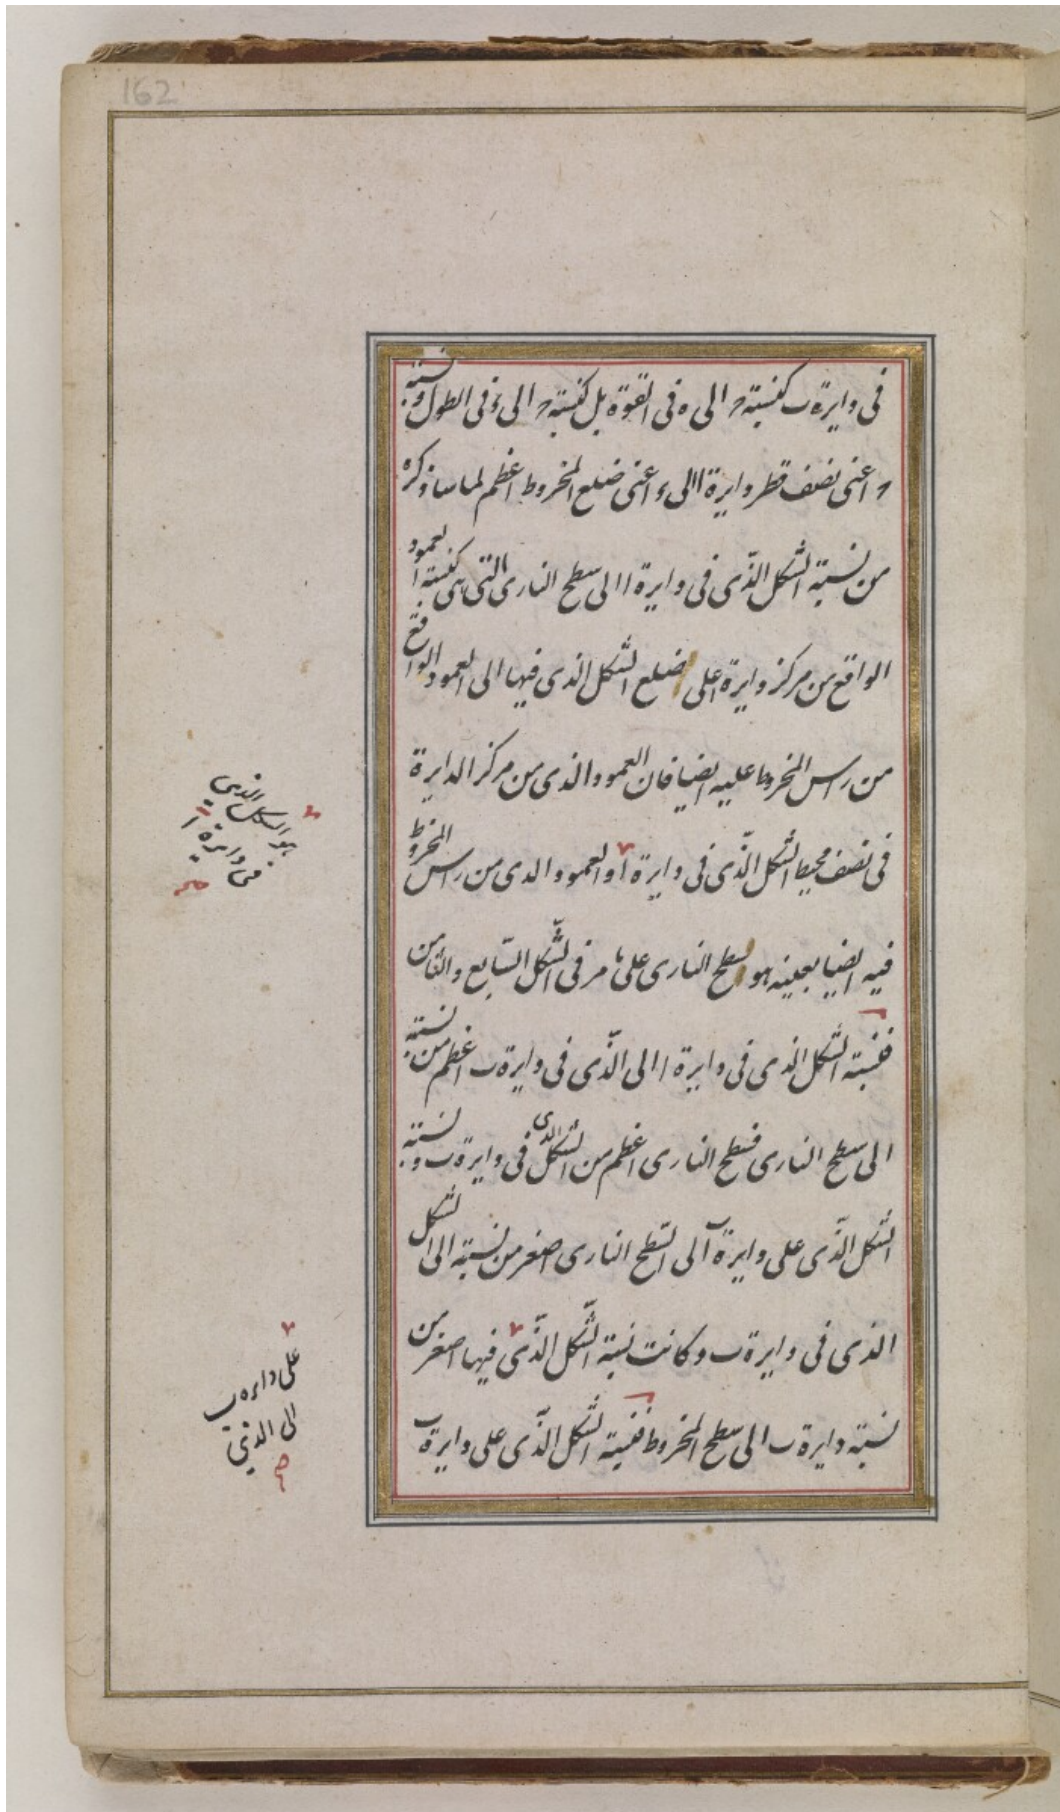 162
فى دايرة ب كنسبة ح الى ه فى القوة بل كنسبة ح الى ء فى الطول ونسبة
ح اعنى نصف قطر دايرة ا الى ء اعنى ضلع المخروط اعظم لما سنذكره
من نسبة الشكل الذى فى دايرة ا الى سطح النارى التى هى كنسبة العمود
الواقع من مركز دايرة ا على ضلع الشكل الذى فيها الى العمود الواقع
من راس المخروط عليه ايضا فان العمود الذى من مركز الدايرة
فى نصف محيط الشكل الذى فى دايرة ا والعمود الذى من راس المخروط
فيه ايضا بعينه هو سطح النارى على ما مر فى الشكل السابع والثامن
فنسبة الشكل الذى فى دايرة ا الى الذى فى دايرة ب اعظم من نسبته
الى سطح النارى فسطح النارى اعظم من الشكل الذى فى دايرة ب ونسبة
الشكل الذى على دايرة ب الى السطح النارى اصغر من نسبته الى الشكل
الذى فى دايرة ب وكانت نسبة الشكل الذى فيها اصغر من
نسبة دايرة ب الى سطح المخروط فنسبة الشكل الذى على دايرة ب
هو الشكل الذى
فى دايرة ا
صح
على دايره ب
الى الذى
صح